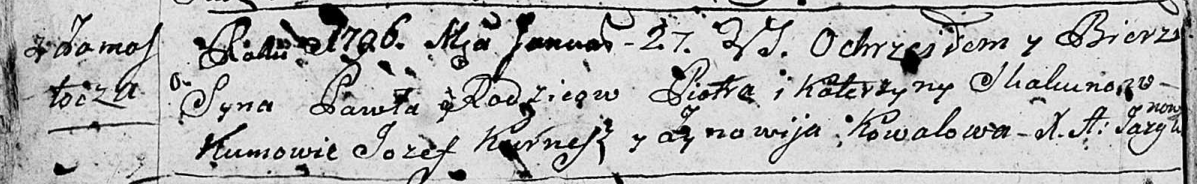 z Zamos
tocza
Roku 1796. Mca Januar - 27. VS. Ochrzciłem y Bierz
Syna Pawła z Rodzicow Piotra i Katerzyny Skakunow
Kumowie Jozef Kurnesz y Zynowija Kowalowa - X. A: